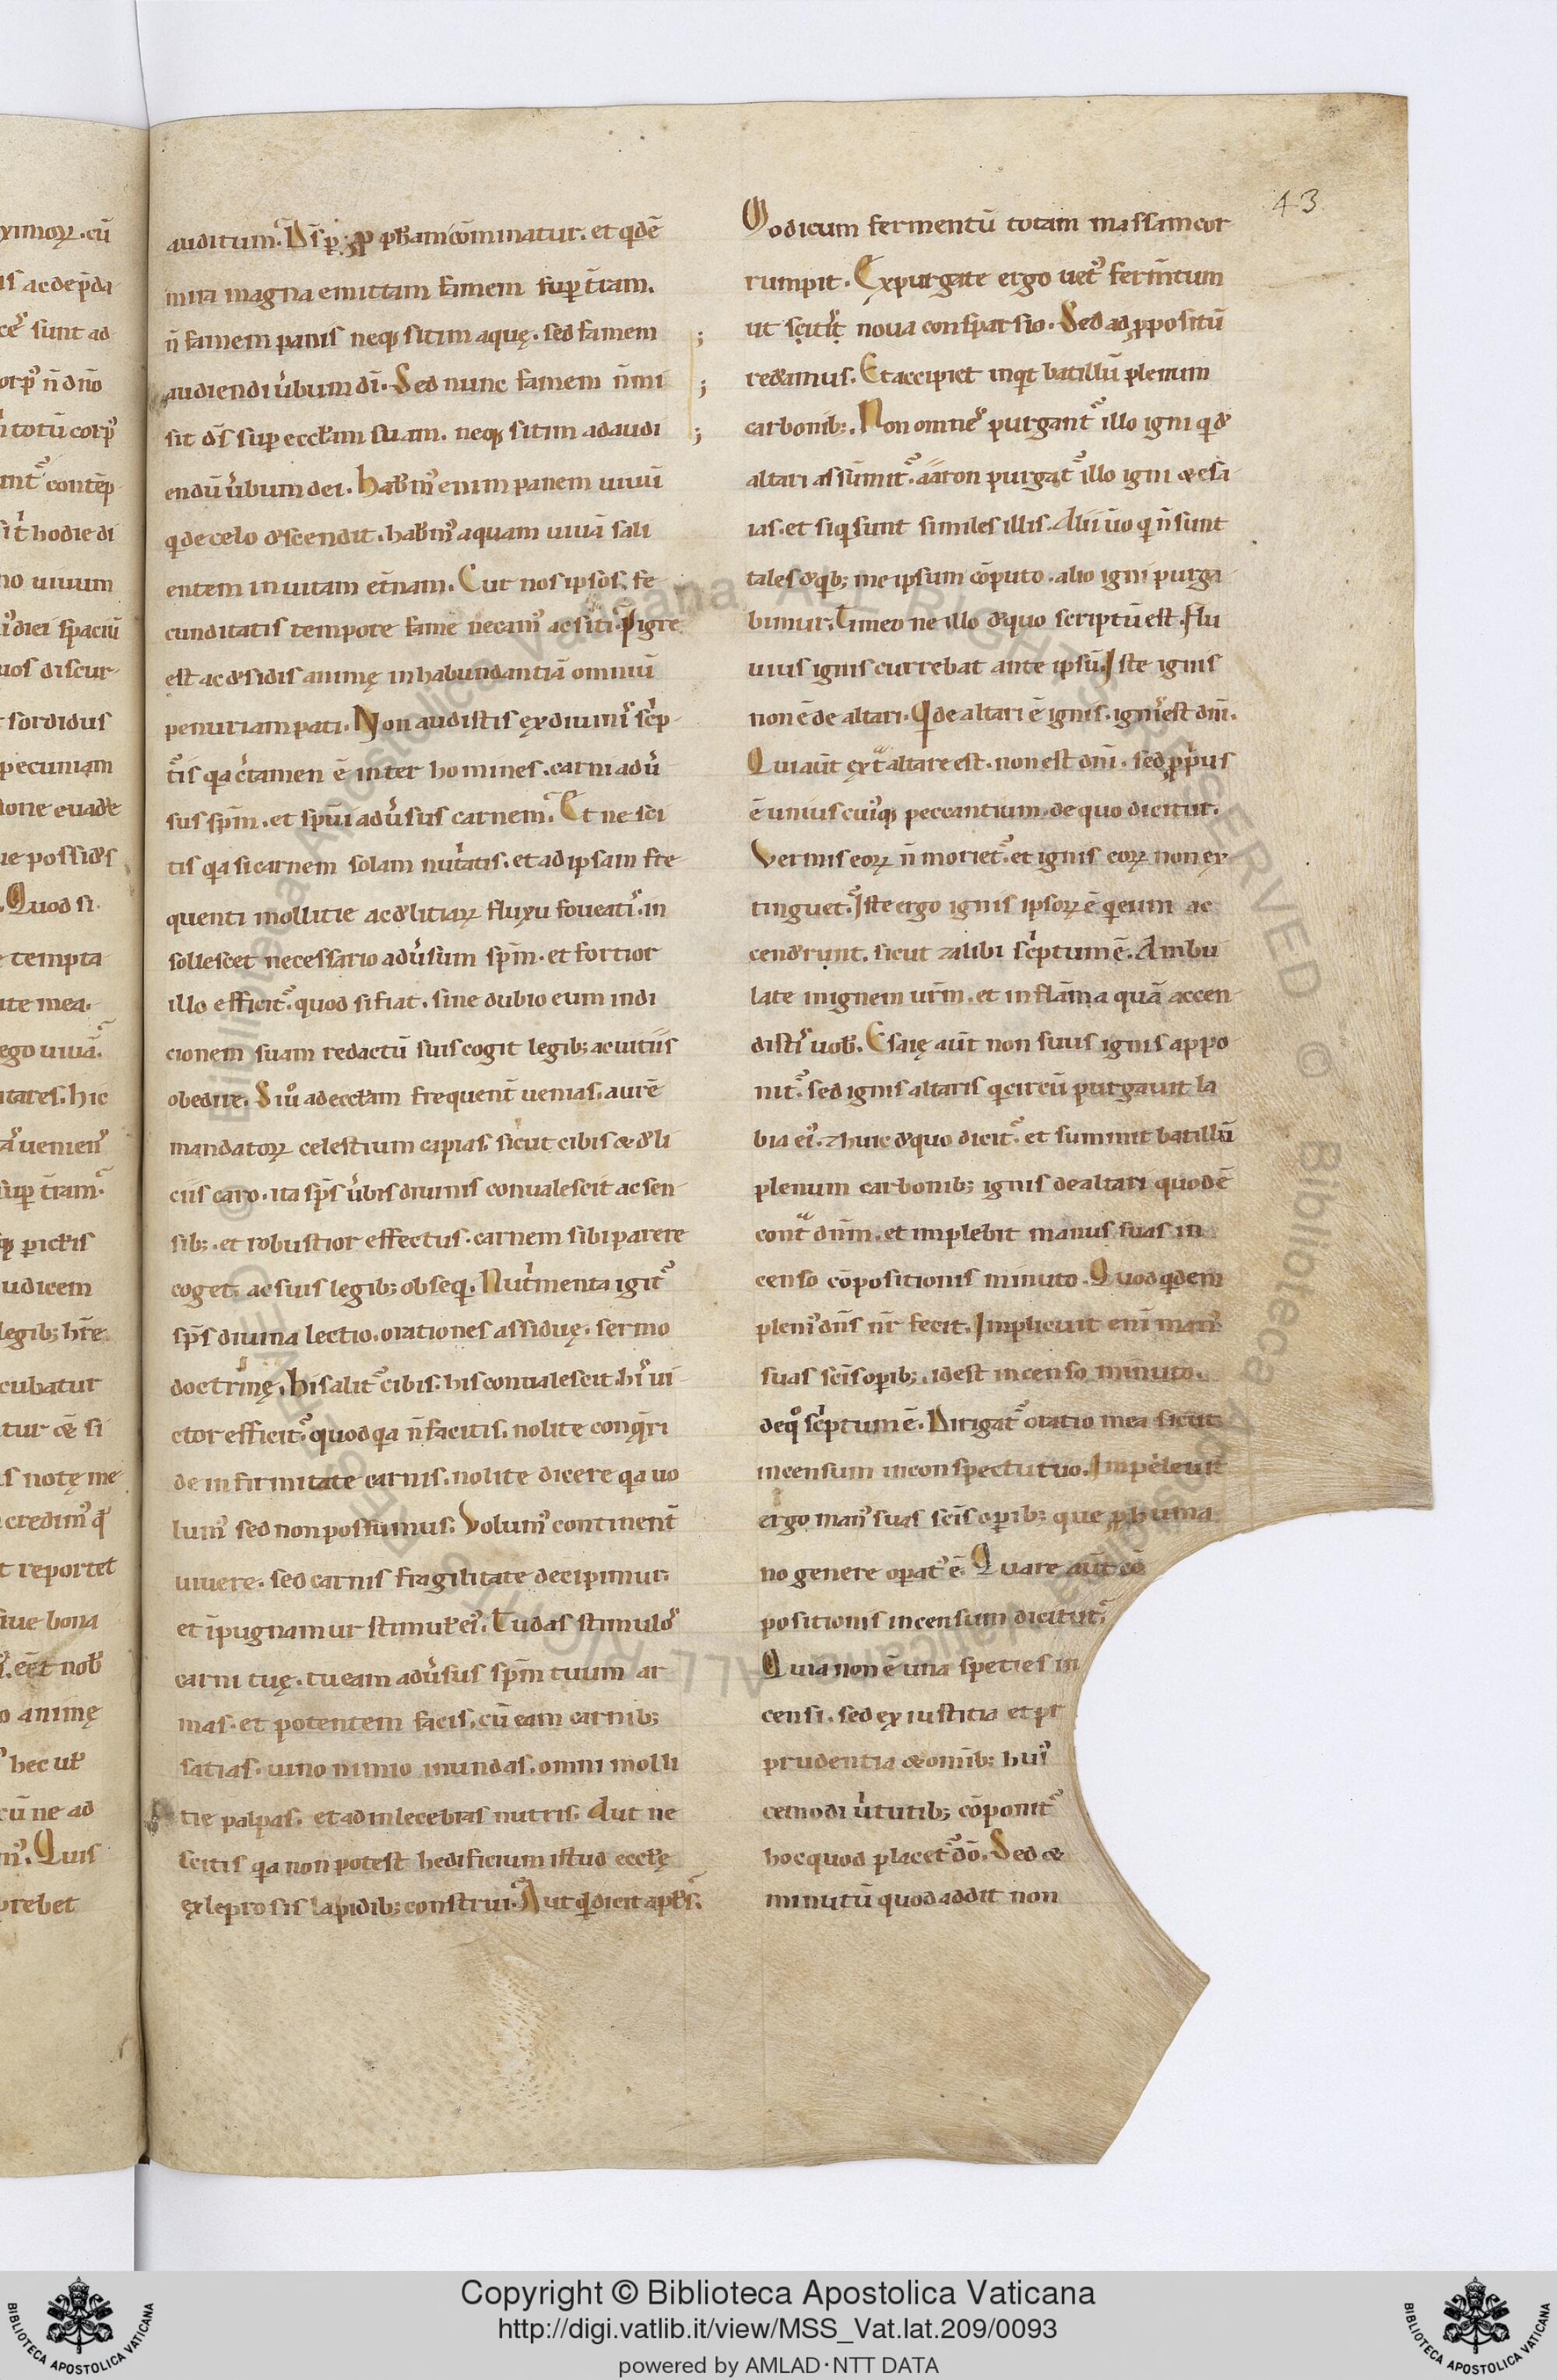 43
auditum. Ds̄ ꝑ ꝓph̄am cōminatur. et qđē
mira magna emittam famem suꝑ t̄ram.
n̄ famem panis neq; sitim aquę. sed famem
audiendi u̓bum dī. Sed nunc famem n̄ mi
sit ds̄ suꝑ eccłam suam. neq; sitim ad audi
endū u̓bum dei. Habem᷒ enim panem uiuū
q̇ de celo descendit. habem᷒ aquam uiuā sali
entem in uitam et̄nam. Cur nos ipsos. fe
cunditatis tempore fame necam᷒ ac siti. Pigre
est ac desidis animę in habundantiā omniū
penuriam pati. Non audistis ex diuinis sc̓p
t᷒is qa c̓tamen ē inter homines. carni adu̓
sus sp̄m. et sp̄ui adu̓sus carnem. Et ne sci
tis qa si carnem solam nut̓atis. et ad ipsam fre
quenti mollitie ac delitiaꝝ fluxu foueatis. in
sollescet necessario adu̓sum sp̄m. et fortior
illo efficit᷒. quod si fiat. sine dubio eum indi
cionem suam redactū suis cogit legib; ac uitiis
obedire. Si u̓o ad eccłam frequent̄ uenias. aurē
mandatoꝝ celestium capias. sicut cibis & deli
ciis caro. ita sp̄s u̓bis diuinis conualescit ac sen
sib;. et robustior effectus. carnem sibi parere
coget. ac suis legib; obseq. Nut̓menta igit᷒
sp̄s diuina lectio. orationes assiduę. sermo
doctrinę. His alit᷒ cibis. his conualescit. his ui
ctor efficit᷒. quod qa n̄ facitis. nolite conq̄ri
de infirmitate carnis. nolite dicere qa uo
lum᷒ sed non possumus. Volum᷒ continent̄
uiuere. sed carnis fragilitate decipimur.
et īpugnamur stimuł ei᷒. Tu das stimulos
carni tuę. tu eam adu̓sus sp̄m tuum ar
mas. et potentem facis. cū eam carnib;
satias. uino nimio inundas. omni molli
tie palpas. et ad inlecebras nutris. Aut ne
scitis qa non potest hedificium istud ecclę
ex leprosis lapidib; construi. Aut qđ dicit apłs.
Modicum fermentū totam massam cor
rumpit. Expurgate ergo uet᷒ ferm̄tum
ut sitis noua consparsio. Sed ad ꝓpositū
redeamus. Et accipiet inqt batillū plenum
carbonib;. Non omnes purgant᷒ illo igni q de
altari assūmit᷒. aaron purgat᷒ illo igni & esa
ias. et siq sunt similes illis. Alii u̓o q n̄ sunt
tales de qb; me ipsum cōputo. alio igni purga
bimur. Timeo ne illo de quo scriptū est. Flu
uius ignis currebat ante ipsū. Iste ignis
non ē de altari. Q de altari ē ignis. ignis est dn̄i.
Qui aūt ext᷒ altare est. non est dn̄i. sed ꝓprius
ē unius cui᷒q; peccantium. de quo dicitur.
Vermis eoꝝ n̄ moriet᷒. et ignis eoꝝ non ex
tinguet᷒. Iste ergo ignis ipsoꝝ ē q eum ac
cenderunt. sicut & alibi sc̓ptum ē. Ambu
late in ignem ur̄m. et in flāma quā accen
distis uob. Esaię aūt non suus ignis appo
nit᷒. sed ignis altaris q circū purgauit la
bia ei᷒. & huic de quo dicit᷒. et sumit batillū
plenum carbonib; ignis de altari quod ē
cont̄ dn̄m. et implebit manus suas in
censo cōpositionis minuto. Quod qdem
plenius dn̄s nr̄ fecit. Impleuit eni man᷒
suas sc̄is oꝑib;. id est incenso minuto.
de q᷒ sc̓ptum ē. Dirigat᷒ oratio mea sicut
incensum in conspectu tuo. Impeleuit
ergo man᷒ suas sc̄is oꝑib; que ꝓ huma
no genere oꝑat᷒ ē. Quare aūt cō
positionis incensum dicitur.
Quia non ē una species in
censi. sed ex iustitia et pr
prudentia & omīb; hui᷒
cemodi u̓tutib; cōponit᷒
hoc quod placet dō. Sed &
minutū quod addit non
Copyright © Biblioteca Apostolica Vaticana
http://digi.vatlib.it/view/MSS_Vat.lat.209/0093
powered by AMLAD·NTT DATA
BIBLIOTECA APOSTOLICA VATICANA
BIBLIOTECA APOSTOLICA VATICANA